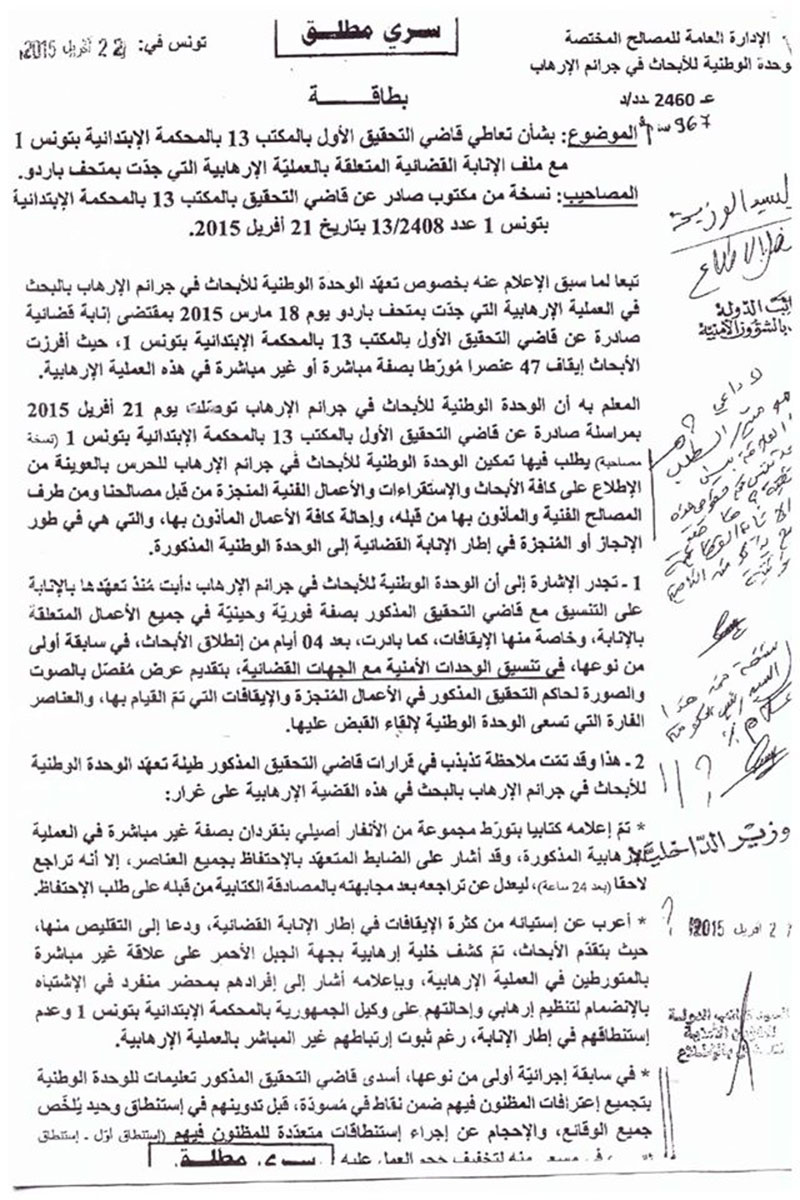 الإدارة العامة للمصالح المختصة
وحدة الوطنية للأبحاث في جرائم الإرهاب
سري مطلق
تونس في: 22 أفريل 2015
عـ 2460 ـدد/د
967
بطاقـــة
الموضوع: بشأن تعاطي قاضي التحقيق الأول بالمكتب 13 بالمحكمة الإبتدائية بتونس 1
مع ملف الإنابة القضائية المتعلقة بالعمليّة الإرهابية التي جدّت بمتحف باردو.
المصاحيب: نسخة من مكتوب صادر عن قاضي التحقيق بالمكتب 13 بالمحكمة الإبتدائية
بتونس 1 عدد 13/2408 بتاريخ 21 أفريل 2015.
تبعا لما سبق الإعلام عنه بخصوص تعهّد الوحدة الوطنية للأبحاث في جرائم الإرهاب بالبحث
في العملية الإرهابية التي جدّت بمتحف باردو يوم 18 مارس 2015 بمقتضى إنابة قضائية
صادرة عن قاضي التحقيق الأول بالمكتب 13 بالمحكمة الإبتدائية بتونس 1، حيث أفرزت
الأبحاث إيقاف 47 عنصرا مُورّطا بصفة مباشرة أو غير مباشرة في هذه العملية الإرهابية.
المعلم به أن الوحدة الوطنية للأبحاث في جرائم الإرهاب توصّلت يوم 21 أفريل 2015
بمراسلة صادرة عن قاضي التحقيق الأول بالمكتب 13 بالمحكمة الإبتدائية بتونس 1 (نسخة
مصاحبة) يطلب فيها تمكين الوحدة الوطنية للأبحاث في جرائم الإرهاب للحرس بالعوينة من
الإطلاع على كافة الأبحاث والإستقراءات والأعمال الفنية المنجزة من قبل مصالحنا ومن طرف
المصالح الفنية والمأذون بها من قبله، وإحالة كافة الأعمال المأذون بها، والتي هي في طور
الإنجاز أو المُنجزة في إطار الإنابة القضائية إلى الوحدة الوطنية المذكورة.
1 - تجدر الإشارة إلى أن الوحدة الوطنية للأبحاث في جرائم الإرهاب دأبت مُنذ تعهّدها بالإنابة
على التنسيق مع قاضي التحقيق المذكور بصفة فوريّة وحينيّة في جميع الأعمال المتعلقة
بالإنابة، وخاصة منها الإيقافات، كما بادرت، بعد 04 أيام من إنطلاق الأبحاث، في سابقة أولى
من نوعها، في تنسيق الوحدات الأمنية مع الجهات القضائية، بتقديم عرض مُفصّل بالصوت
والصورة لحاكم التحقيق المذكور في الأعمال المُنجزة والإيقافات التي تمّ القيام بها، والعناصر
الفارة التي تسعى الوحدة الوطنية لإلقاء القبض عليها.
2 - هذا وقد تمّت ملاحظة تذبذب في قرارات قاضي التحقيق المذكور طيلة تعهّد الوحدة الوطنية
للأبحاث في جرائم الإرهاب بالبحث في هذه القضية الإرهابية على غرار:
* تمّ إعلامه كتابيا بتورّط مجموعة من الأنفار أصيلي بنقردان بصفة غير مباشرة في العملية
الإرهابية المذكورة، وقد أشار على الضابط المتعهّد بالإحتفاظ بجميع العناصر، إلا أنه تراجع
لاحقا (بعد 24 ساعة)، ليعدل عن تراجعه بعد مجابهته بالمصادقة الكتابية من قبله على طلب الإحتفاظ.
* أعرب عن إستيائه من كثرة الإيقافات في إطار الإنابة القضائية، ودعا إلى التقليص منها،
حيث بتقدّم الأبحاث، تمّ كشف خلية إرهابية بجهة الجبل الأحمر على علاقة غير مباشرة
بالمتورطين في العملية الإرهابية، وبإعلامه أشار إلى إفرادهم بمحضر منفرد في الإشتباه
بالإنضمام لتنظيم إرهابي وإحالتهم على وكيل الجمهورية بالمحكمة الإبتدائية بتونس 1 وعدم
إستنطاقهم في إطار الإنابة، رغم ثبوت إرتباطهم غير المباشر بالعملية الإرهابية.
* في سابقة إجرائيّة أولى من نوعها، أسدى قاضي التحقيق المذكور تعليمات للوحدة الوطنية
بتجميع إعترافات المظنون فيهم ضمن نقاط في مسودّة، قبل تدوينهم في إستنطاق وحيد يُلخّص
جميع الوقائع، والإحجام عن إجراء إستنطاقات متعدّدة للمظنون فيهم (إستنطاق أوّل - إستنطاق
في مسعى منه لتخفيف حجم العمل عليه
سري مطلق
للسيد الوزير
الدولة
بالشؤون الأمنية
لا داعي
وزير الداخلية
2 أفريل 2015